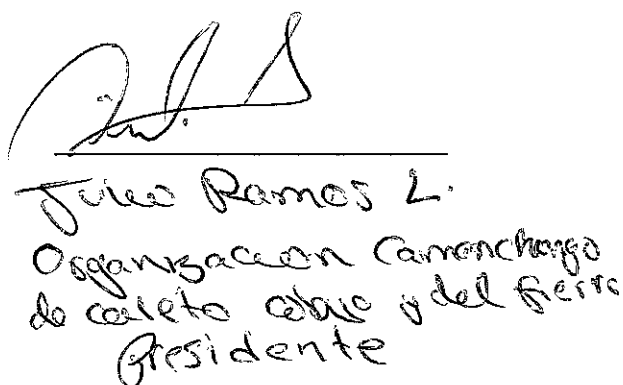 Julio Ramos L.
Organizacion Camanchango
de caleta cobre y del fierro
Presidente